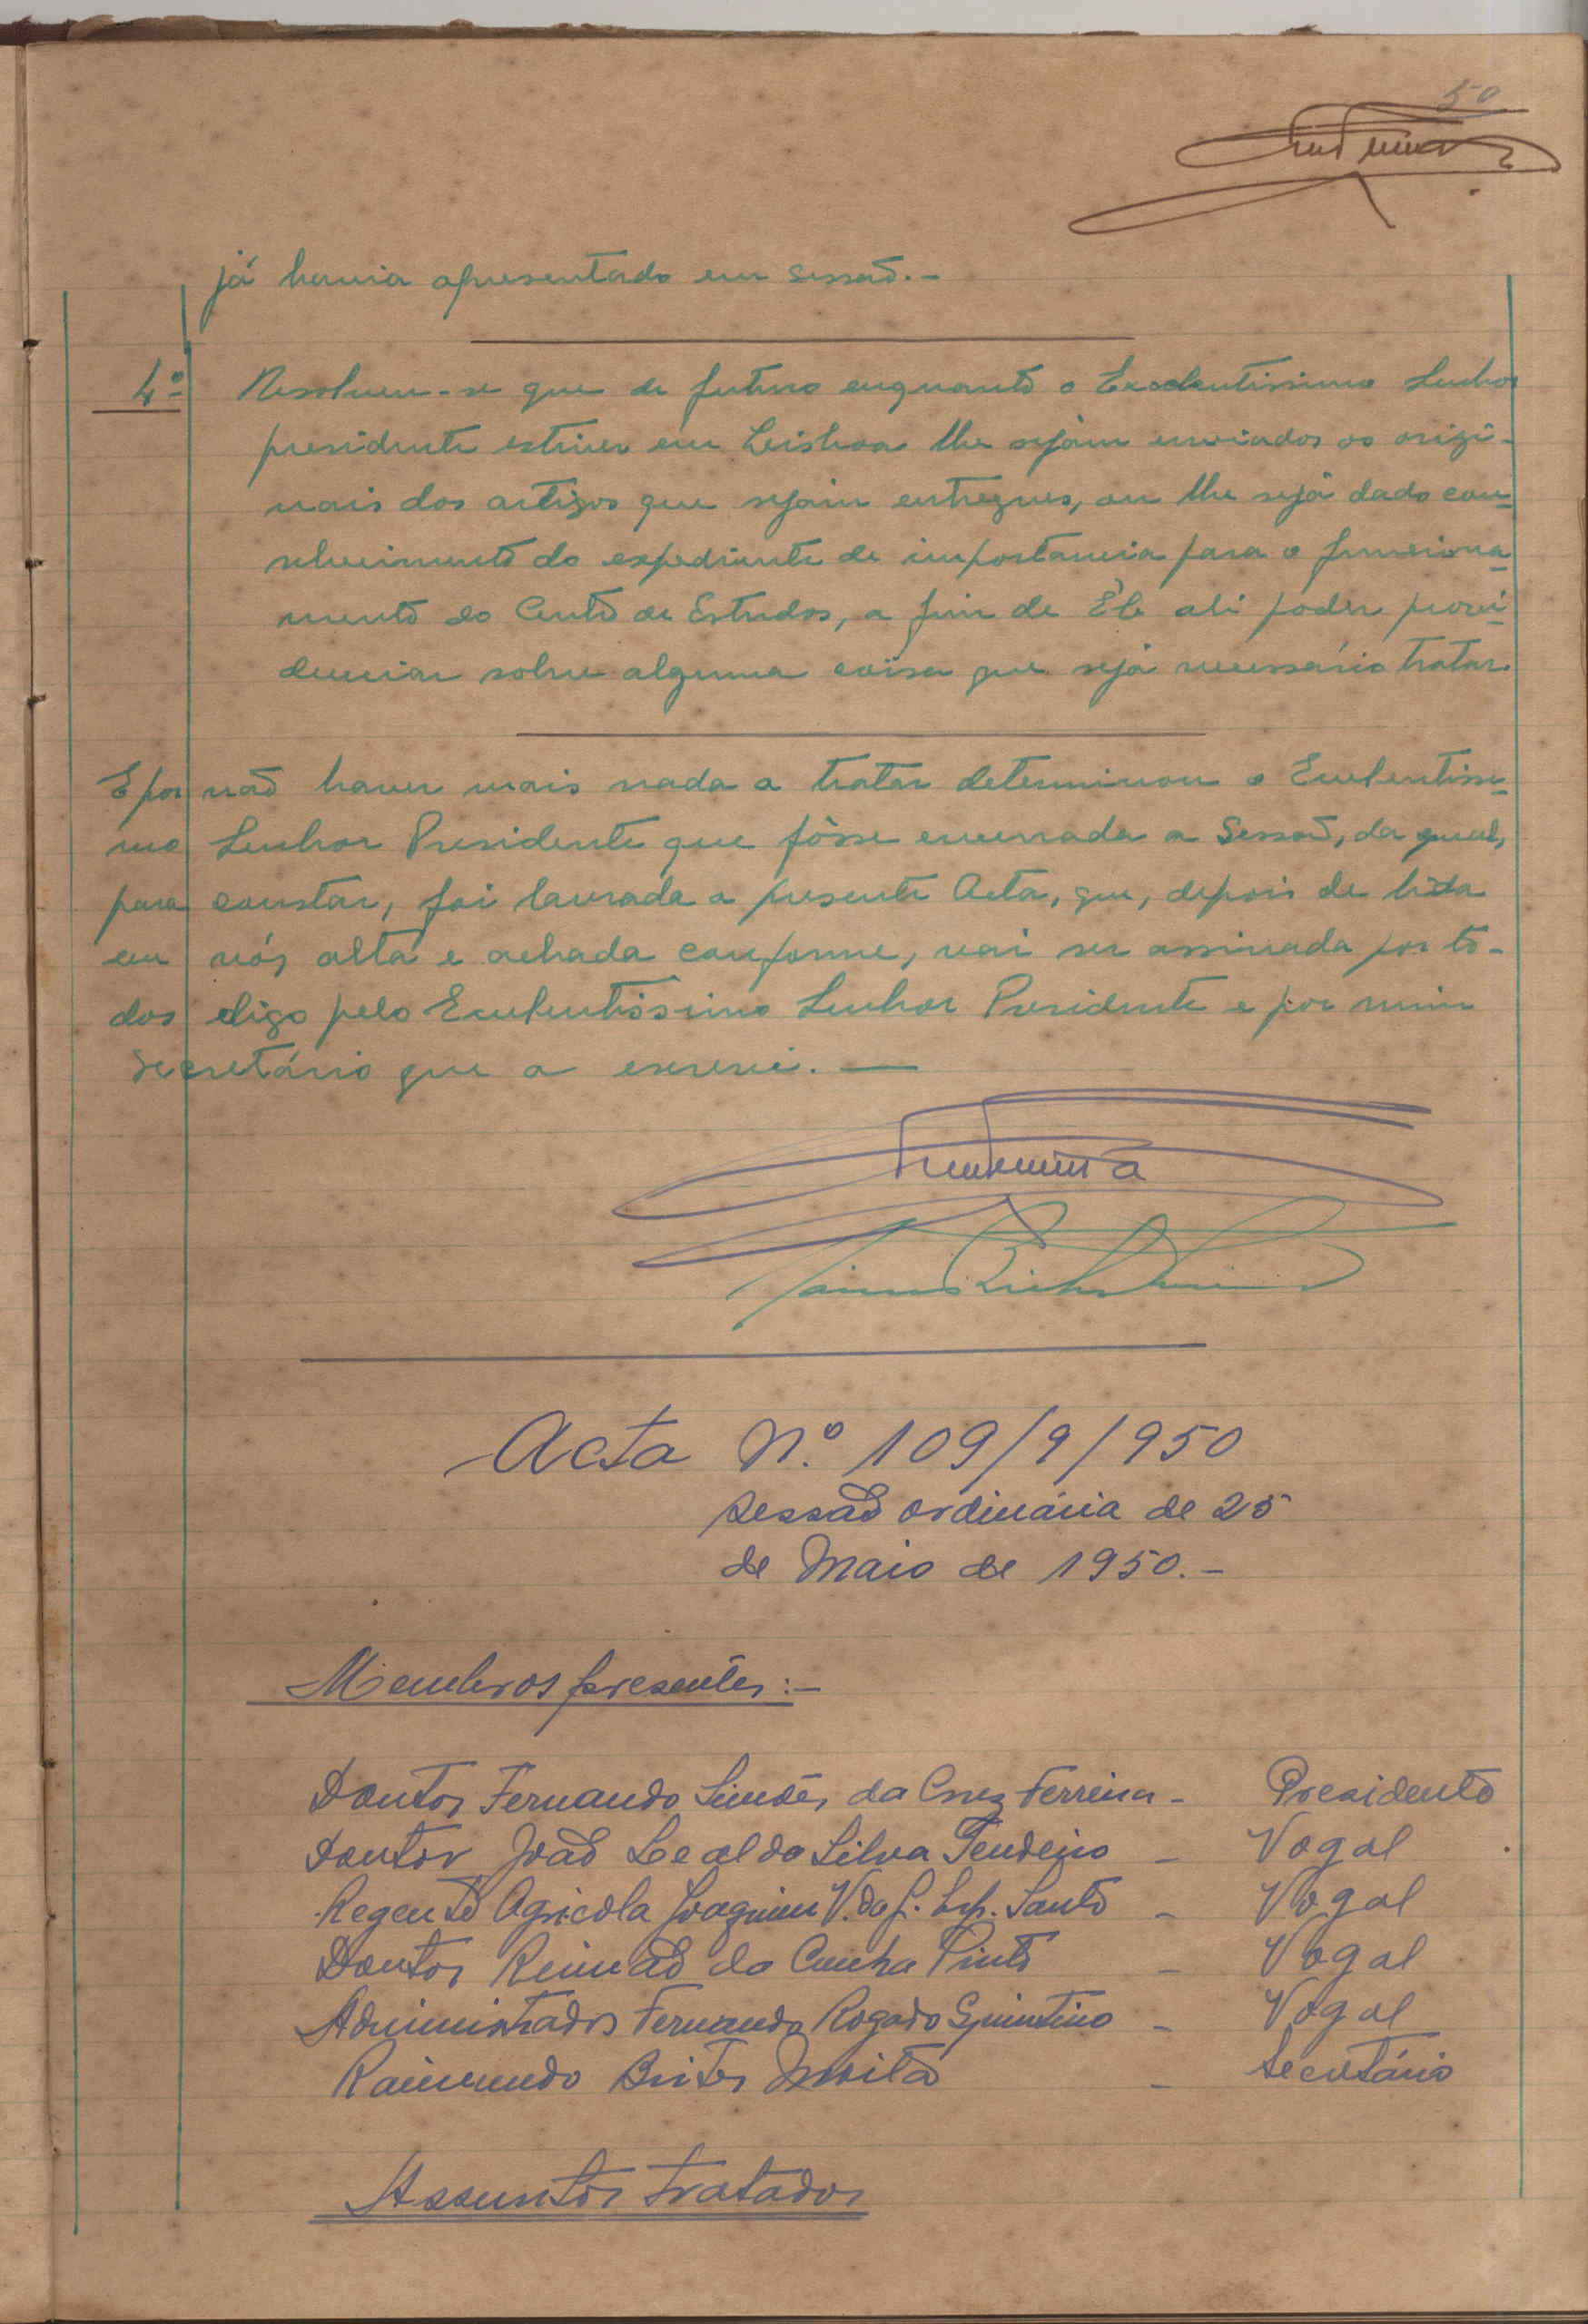 50
já havia apresentado em sessão.-
4º Resolveu-se que de futuro enquanto o Excelentissimo Senhor
presidente estiver em Lisboa lhe sejam enviados os origi-
nais dos artigos que sejam entregues, ou lhe seja dado con-
nhecimento do expediente de importancia para o funciona-
mento do Centro de Estudos, a fim de Êle ali poder provi-
denciar sobre alguma coisa que seja necessário tratar.
E por não haver mais nada a tratar determinou o Excelentissi-
mo Senhor Presidente que fôsse encerrada a Sessão, da qual,
para constar, foi lavrada a presente Acta, que, depois de lida
em vós alta e achada conforme, vai ser assinada por to-
dos digo pelo Excelentissimo Senhor Presidente e por mim
Secretário que a escrevi. —
Acta Nº. 109/9/950
Sessão ordinária de 25
de Maio de 1950.-
Membros presentes:-
Doutor Fernando Simões da Cruz Ferreira - Presidente
Doutor João Leal da Silva Tendeiro - Vogal
Regente Agricola Joaquim V. da G. Esp. Santo - Vogal
Doutor Reimão da Cunha Pinto - Vogal
Administrador Fernando Rogado Quintino - Vogal
Raimundo Brites Moita - Secretário
Assuntos tratados